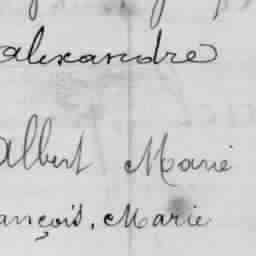 alexandre
albert Marie
ançois, Marie